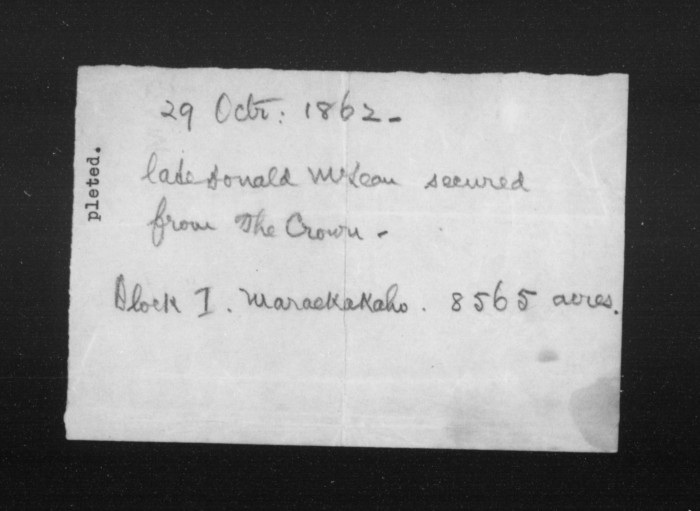 29 Octr: 1862 -
late Donald McLean secured
from The Crown -
Block I. Maraekakaho. 8565 acres.
pleted.